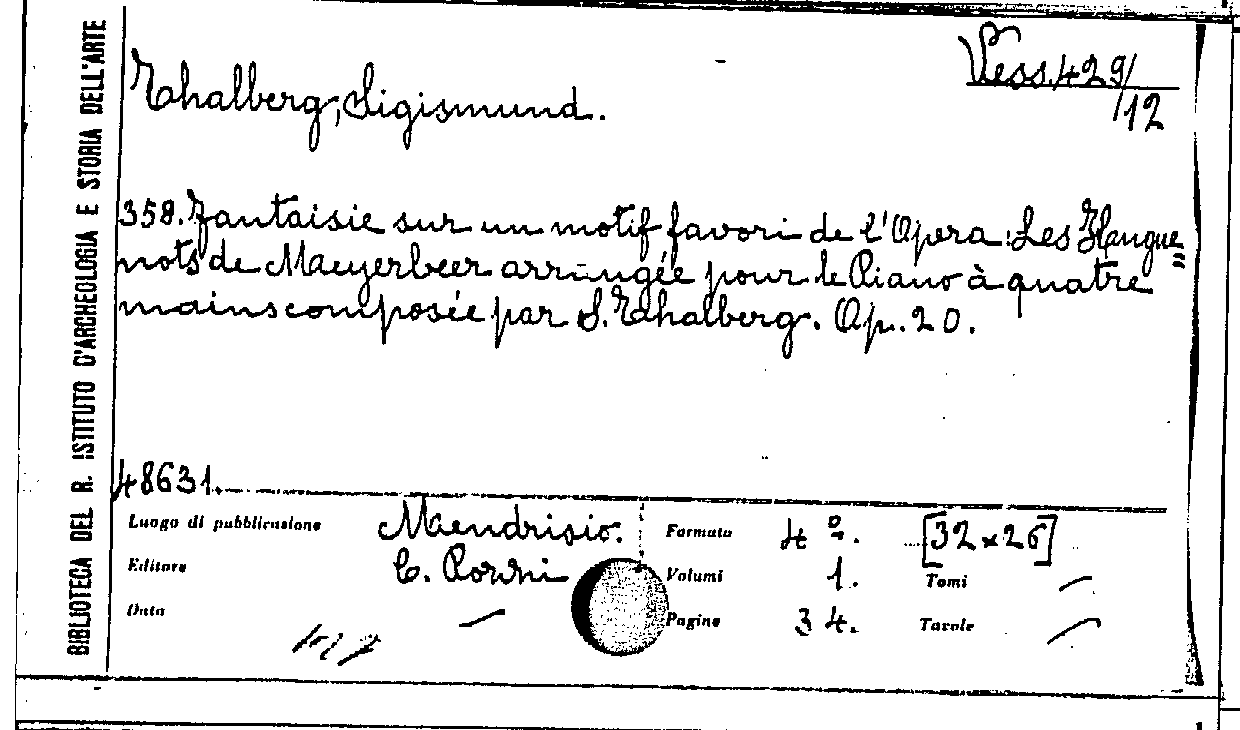 BIBLIOTECA DEL R. ISTITUTO D'ARCHEOLOGIA E STORIA DELL'ARTE
Thalberg, Sigismund.
Vess. 429/12
358. Fantaisie sur un motif favori de l'Opera: Les Hugue„
nots de Maeyerbeer arrangée pour le Piano à quatre
mains composée par S. Thalberg. Op. 20.
48631.
Luogo di pubblicazione Mendrisio.
Editore C. Pozzi
Data —
Formato 4º. [32 x 26]
Volumi 1. Tomi —
Pagine 34. Tavole —